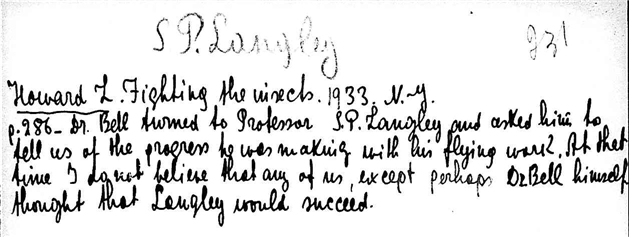 S.P. Langley 231
Howard L. Fighting the insects. 1933. N-y.
p.286- Dr. Bell turned to Professor S.P. Langley and asked him to
tell us of the progress he was making with his flying work. At that
time I do not believe that any of us, except perhaps Dr Bell himself
thought that Langley would succeed.